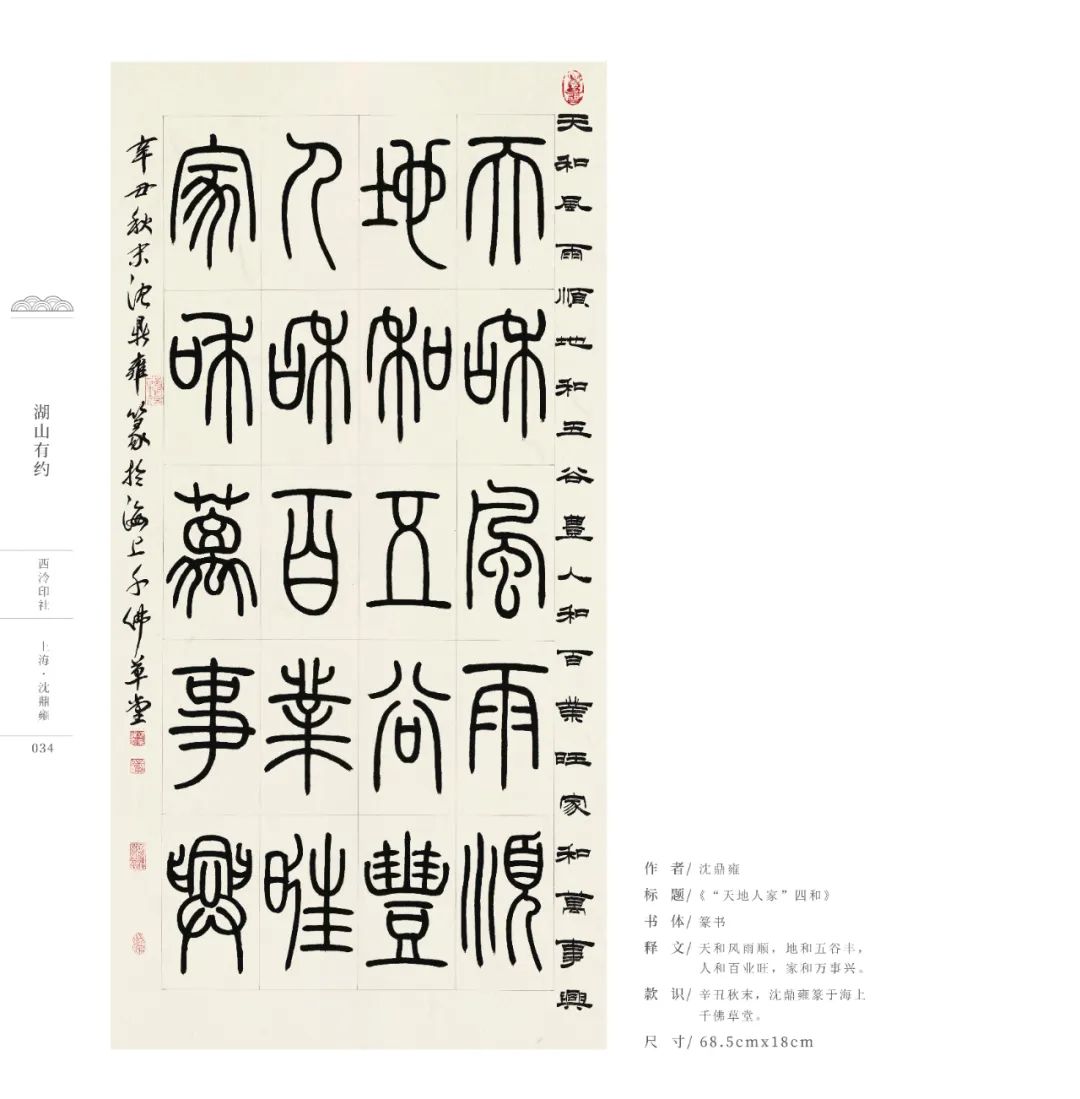 天和風雨順地和五谷豊人和百業旺家和萬事興
天和風雨順
地和五谷豐
人和百業旺
家和萬事興
辛丑秋末沈鼎雍篆於海上千佛草堂
湖山有约
西泠印社
上海·沈鼎雍
034
作 者/ 沈鼎雍
标 题/《“天地人家”四和》
书 体/ 篆书
释 文/ 天和风雨顺，地和五谷丰，
人和百业旺，家和万事兴。
款 识/ 辛丑秋末，沈鼎雍篆于海上
千佛草堂。
尺 寸/ 68.5cmx18cm